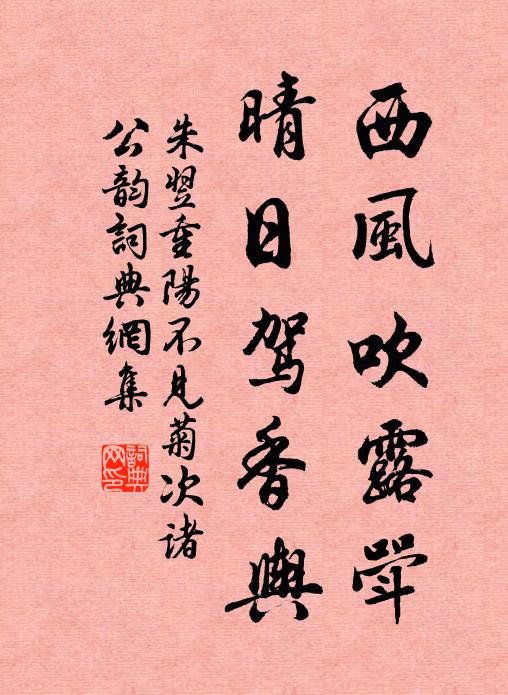 西風吹露斝
晴日駕香輿
朱翌重陽不見菊次諸
公韵詞典網集
詞典
网印